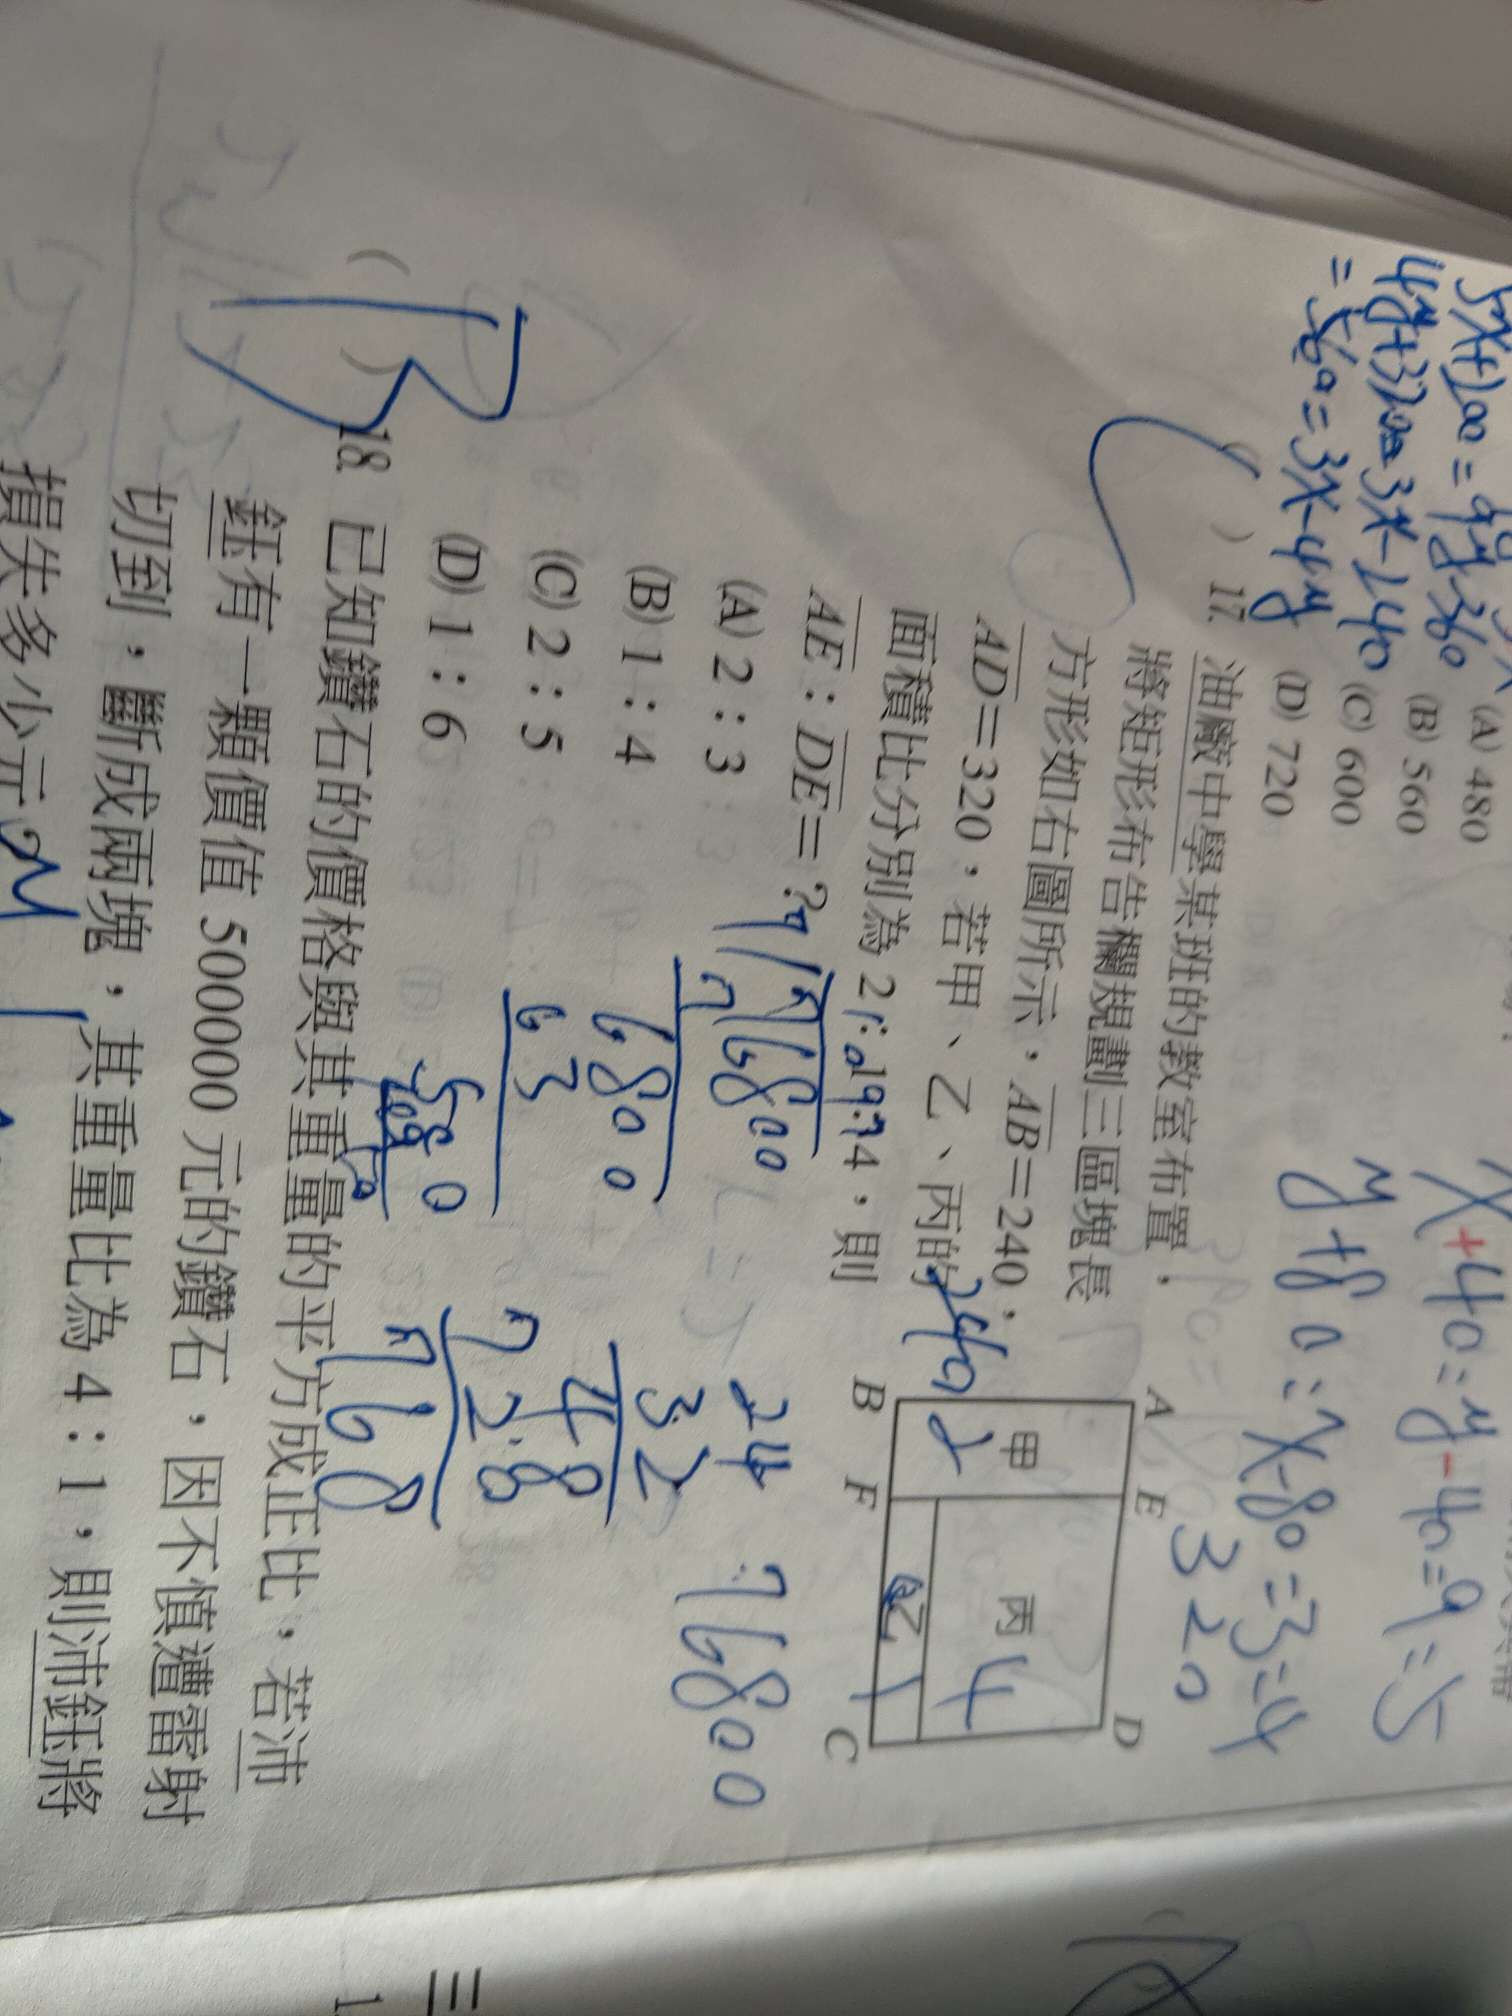 (A) 480
(B) 560
(C) 600
(D) 720
= 560 = 3x-4y
x+40=y-40=9=5
y+80:x-80=3=4
( ) 17. 油廠中學某班的教室布置,
將矩形布告欄規劃三區塊長
方形如右圖所示,AB=240,
AD=320,若甲、乙、丙的
面積比分別為 2:1:4,則
AE:DE=?
(A) 2:3
(B) 1:4
(C) 2:5
(D) 1:6
320
A E D
甲 丙
2 4
乙 1
B F C
240
7 76800
7
6800
63
24
32
48
72
768
76800
( B ) 18. 已知鑽石的價格與其重量的平方成正比,若沛
鈺有一顆價值 500000 元的鑽石,因不慎遭雷射
切到,斷成兩塊,其重量比為 4:1,則沛鈺將
損失多少元
三
1